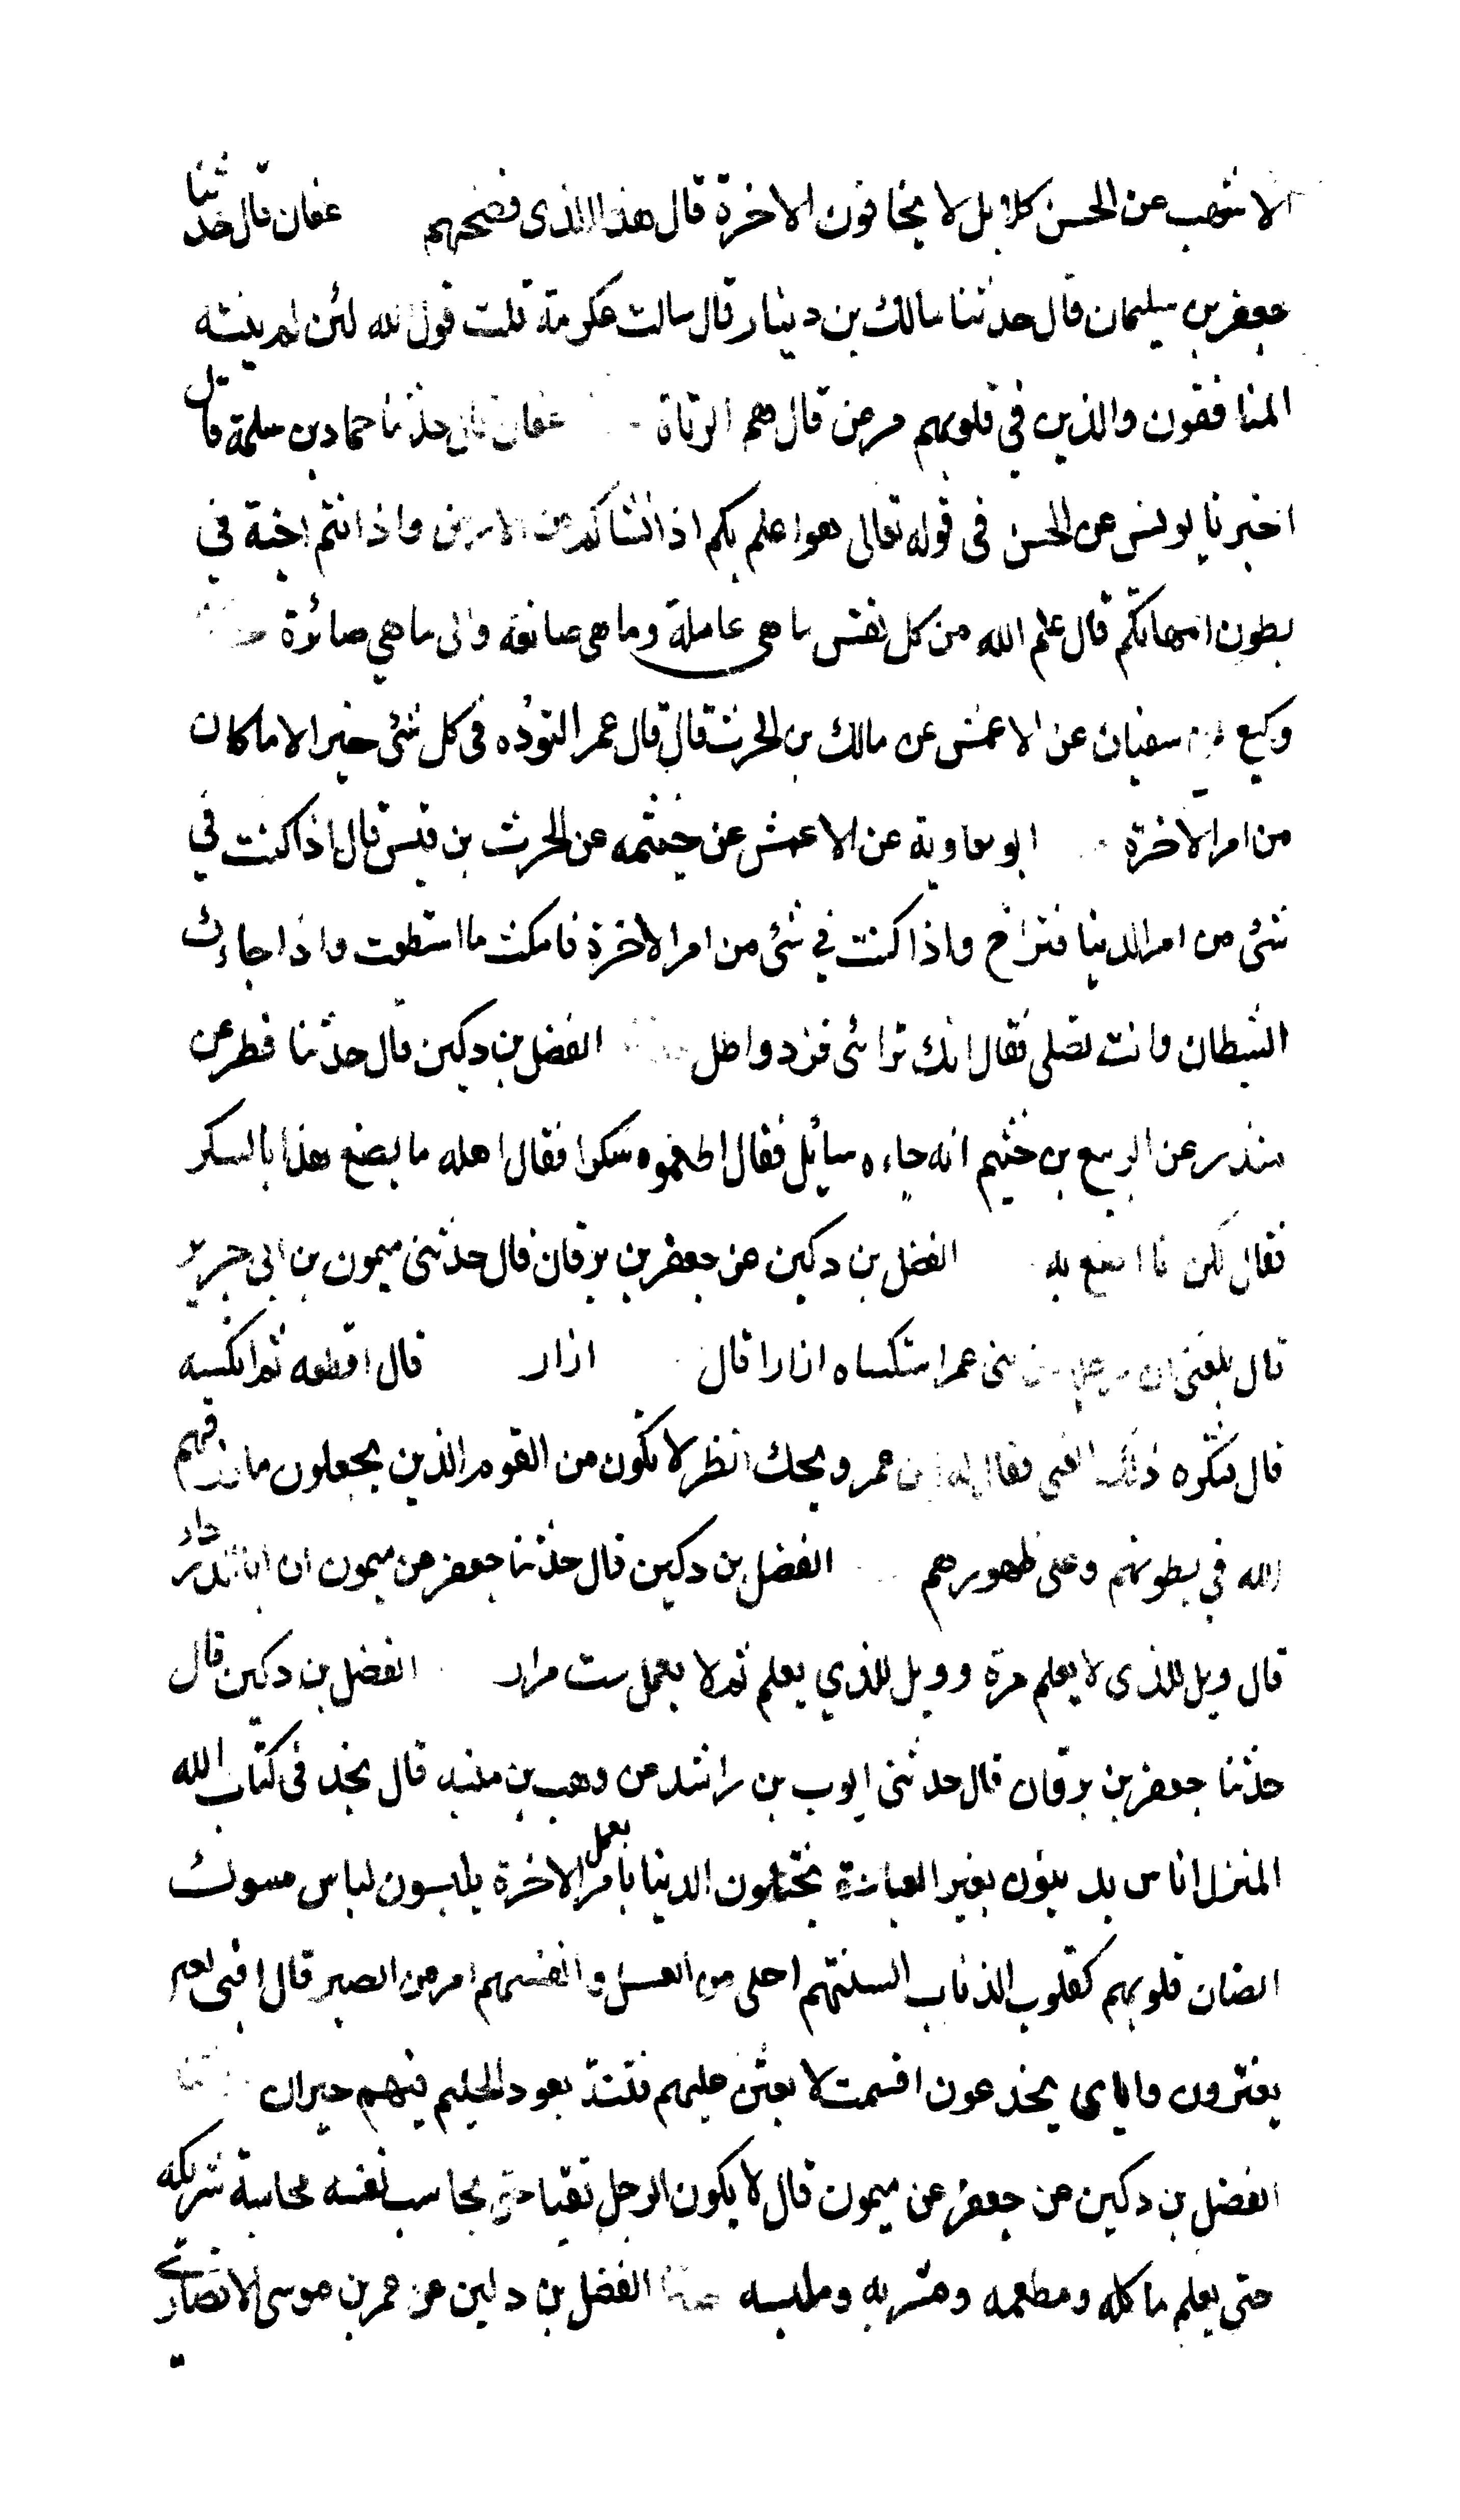 الاشهب عن الحسن كلا بل لا يخافون الاخرة قال هذا الذى فضحهم عفان قال حدثنا
جعفر بن سليمان قال حدثنا مالك بن دينار قال سالت عكرمة قلت قول الله لئن لم ينته
المنافقون والذين في قلوبهم مرض قال هم الزناة عفان قال حدثنا حماد بن سلمة قال
اخبرنا يونس عن الحسن فى قوله تعالى هو اعلم بكم اذ انشاكم من الارض واذ انتم اجنة في
بطون امهاتكم قال علم الله من كل نفس ما هى عاملة وما هى صانعة والى ما هي صائرة
وكيع سفيان عن الاعمش عن مالك بن الحرث قال قال عمر التؤده فى كل شئ خير الا ما كان
من امر الاخرة ابو معاوية عن الاعمش عن خيثمه عن الحرث بن قيس قال اذا كنت في
شئ من امر الدينا فتراخ واذا كنت في شئ من امر الاخرة فامكث ما استطعت واذا جاءك
الشيطان وانت تصلى فقال انك ترائى فزد واطل الفضل بن دكين قال حدثنا فطر عن
منذر عن الربيع بن خثيم انه جاءه سائل فقال اطعموه سكرا فقال اهله ما يصنع هذا بالسكر
فقال لكن انا اصنع به الفضل بن دكين عن جعفر بن برقان قال حدثنى ميمون بن ابي جرير
قال بلغنى ان بنى عمر استكساه ازارا قال ازار قال اقطعه ثم اكسه
قال فتكره ذلك الفتى فقال له ابن عمر ويحك انظر لا تكون من القوم الذين يجعلون ما رزقهم
الله في بطونهم وعلى ظهورهم الفضل بن دكين قال حدثنا جعفر عن ميمون ان ابا الدرداء
قال ويل للذى لا يعلم مرة وويل للذي يعلم ثم لا يعمل ست مرار الفضل بن دكين قال
حدثنا جعفر بن برقان قال حدثنى ايوب بن راشد عن وهب بن منبه قال نجد فى كتاب الله
المنزل اناس يدينون بغير العبادة يختلون الدينا بامر بعمل الاخرة يلبسون لباس مسوك
الضان قلوبهم كقلوب الذئاب السنتهم احلى من العسل وانفسهم امر من الصبر قال افبى
يغترون واياى يخدعون اقسمت لابعثن عليهم فتنة يعود الحليم فيهم حيران
الفضل بن دكين عن جعفر عن ميمون قال لا يكون الرجل تقيا حتى يحاسب نفسه محاسبة شريكه
حتى يعلم ماكله ومطعمه ومشربه وملبسه حدثنا الفضل بن دكين عن عمر بن موسى الانصارى